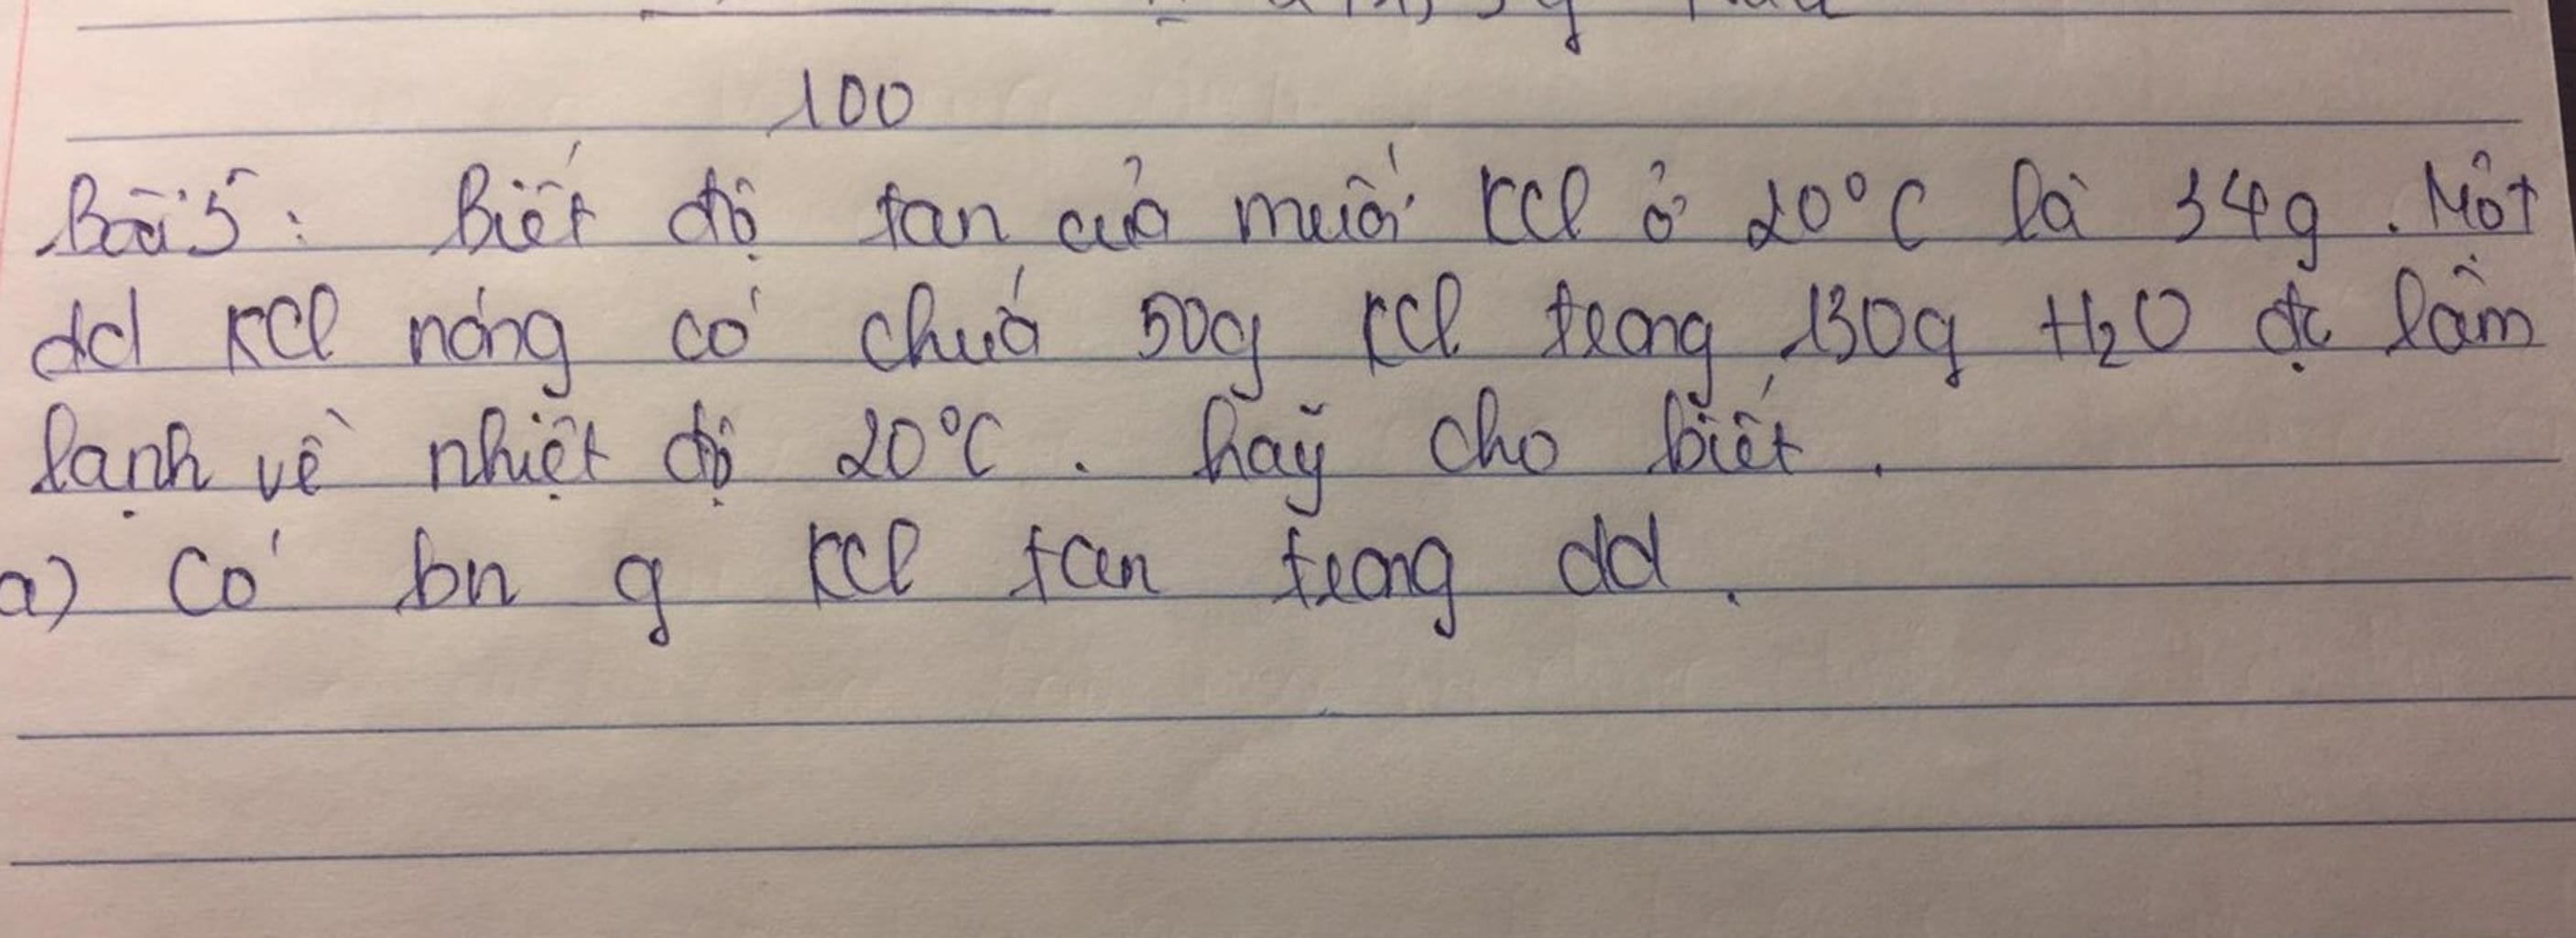 100
Bài 5 : Biết độ tan của muối KCl ở 20°C là 34g . Một
dd KCl nóng có chứa 50g KCl trong 130g H₂O đc làm
lạnh về nhiệt độ 20°C . hãy cho biết .
a) Có bn g KCl tan trong dd .